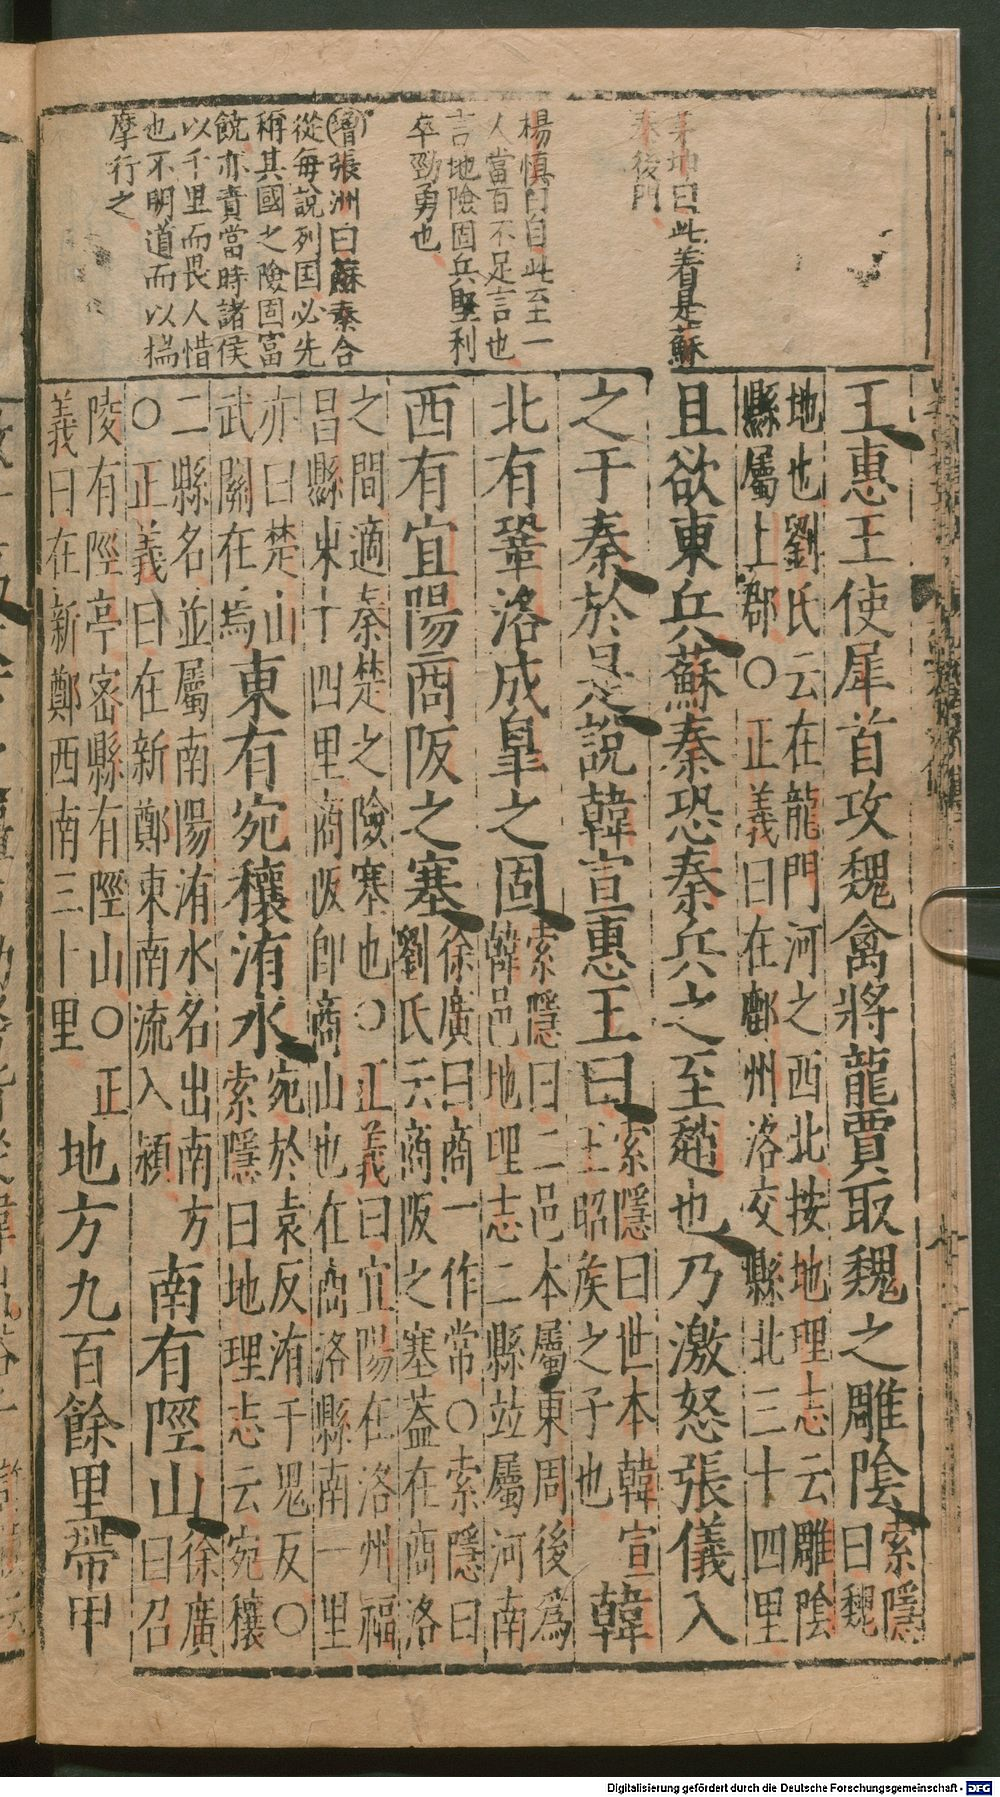 茅坤曰此着是蘇
秦後門
楊慎曰自此至一
人當百不足言也
言地險固兵堅利
卒勁勇也
增張洲曰蘇秦合
從每說列国必先
稱其國之險固富
饒亦責當時諸侯
以千里而畏人惜
也不明道而以揣
摩行之
王惠王使犀首攻魏禽將龍賈取魏之雕陰索隱曰魏
地也劉氏云在龍門河之西北按地理志云雕陰
縣屬上郡○正義曰在鄜州洛交縣北三十四里
且欲東兵蘇秦恐秦兵之至趙也乃激怒張儀入
之于秦於是說韓宣惠王曰索隱曰世本韓宣王昭矦之子也韓
北有鞏洛成皐之固索隱曰二邑本屬東周後為韓邑地理志二縣竝屬河南
西有宜陽商阪之塞徐廣曰商一作常○索隱曰劉氏云商阪之塞葢在商洛
之間適秦楚之險塞也○正義曰宜陽在洛州福
昌縣東十四里商阪卽商山也在商洛縣南一里
亦曰楚山武關在焉東有宛穰洧水宛於袁反洧于軌反○索隱曰地理志云宛穰
二縣名並屬南陽洧水名出南方○正義曰在新鄭東南流入潁南有陘山徐廣曰召
陵有陘亭密縣有陘山○正義曰在新鄭西南三十里地方九百餘里帶甲
Digitalisierung gefördert durch die Deutsche Forschungsgemeinschaft - DFG